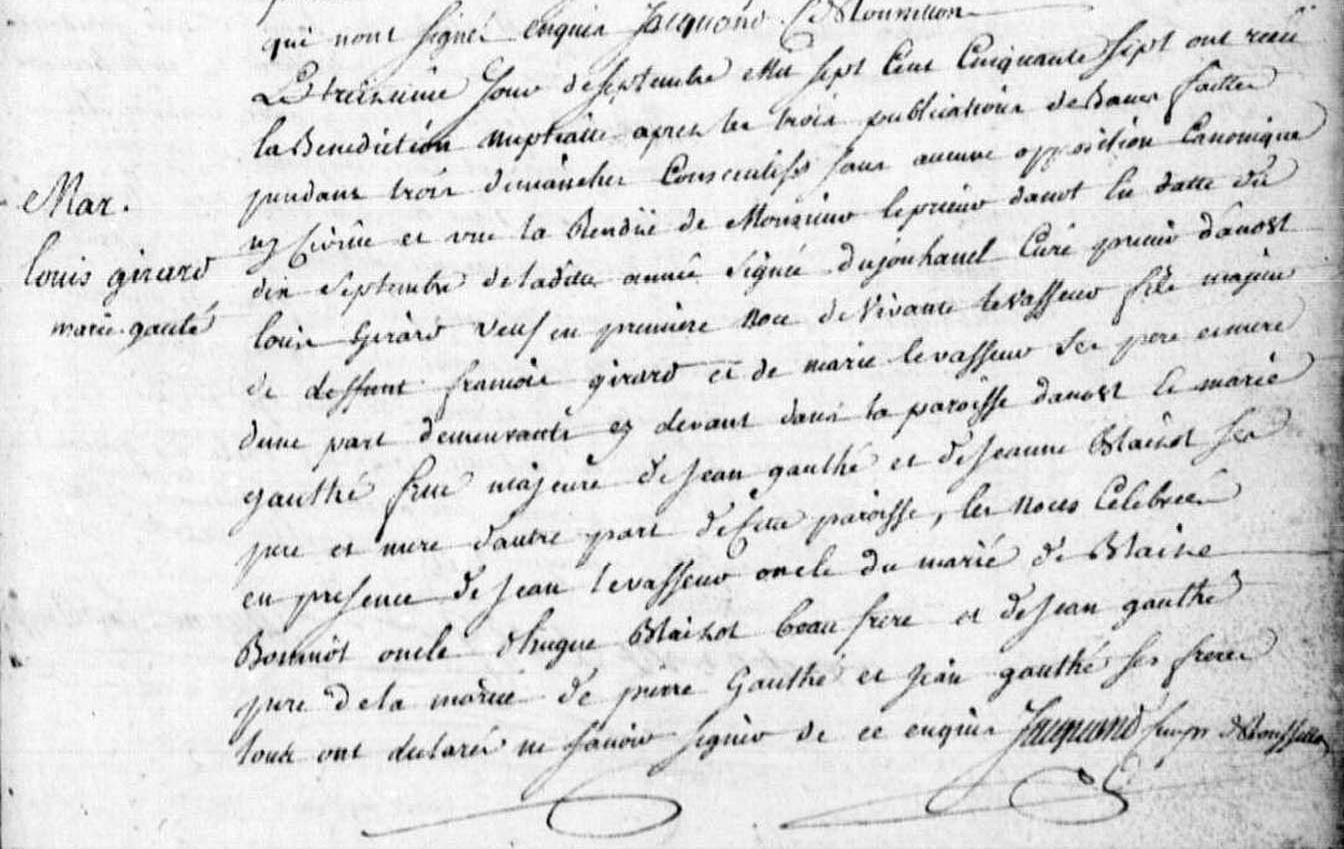 qui n'ont signé enquis Jacquand
Le treizieme Jour de septembre mil sept Cent Cinquante sept ont recu
la Benediction nuptialle apres les trois publications de Bancs faittes
pendant trois dimanches Consecutifs sans aucune opposition Canonique
ny Civille et vue la Rendüe de Monsieur le prieur danost en datte du
dix septembre de ladite année signée dujouhanel Curé prieur danost
louis Girard veuf en premiere noce de Vivante levasseur fils majeur
de deffunt francois girard et de marie levasseur ses pere et mere
dune part demeurants cy devant dans la paroisse danost et marie
gauthé fille majeure de Jean gauthé et de Jeanne Blaizot ses
pere et mere dautre part de Cette paroisse, les noces Celebrées
en presence de Jean levasseur oncle du marié de Blaise
Bonnot oncle dhugue Blaizot beau frere et de Jean gauthé
pere de la mariée de pierre Gauthé et Jean gauthé ses freres
touts ont declarés ne sçavoir signer de ce enquis Jacquand
Mar.
louis girard
marie gauté